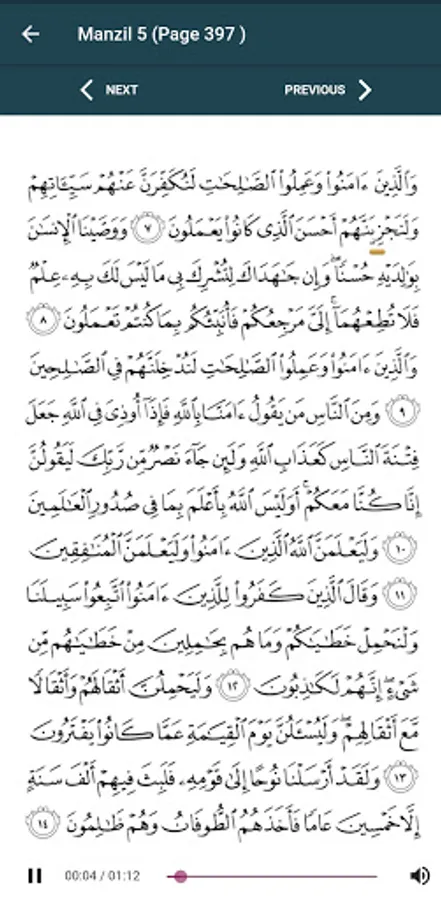 Manzil 5 (Page 397 )
NEXT
PREVIOUS
وَٱلَّذِينَ ءَامَنُوا۟ وَعَمِلُوا۟ ٱلصَّـٰلِحَـٰتِ لَنُكَفِّرَنَّ عَنْهُمْ سَيِّـَٔاتِهِمْ
وَلَنَجْزِيَنَّهُمْ أَحْسَنَ ٱلَّذِى كَانُوا۟ يَعْمَلُونَ ٧ وَوَصَّيْنَا ٱلْإِنسَـٰنَ
بِوَٰلِدَيْهِ حُسْنًا ۖ وَإِن جَـٰهَدَاكَ لِتُشْرِكَ بِى مَا لَيْسَ لَكَ بِهِۦ عِلْمٌ
فَلَا تُطِعْهُمَآ ۚ إِلَىَّ مَرْجِعُكُمْ فَأُنَبِّئُكُم بِمَا كُنتُمْ تَعْمَلُونَ ٨
وَٱلَّذِينَ ءَامَنُوا۟ وَعَمِلُوا۟ ٱلصَّـٰلِحَـٰتِ لَنُدْخِلَنَّهُمْ فِى ٱلصَّـٰلِحِينَ
٩ وَمِنَ ٱلنَّاسِ مَن يَقُولُ ءَامَنَّا بِٱللَّهِ فَإِذَآ أُوذِىَ فِى ٱللَّهِ جَعَلَ
فِتْنَةَ ٱلنَّاسِ كَعَذَابِ ٱللَّهِ وَلَئِن جَآءَ نَصْرٌ مِّن رَّبِّكَ لَيَقُولُنَّ
إِنَّا كُنَّا مَعَكُمْ ۚ أَوَلَيْسَ ٱللَّهُ بِأَعْلَمَ بِمَا فِى صُدُورِ ٱلْعَـٰلَمِينَ
١٠ وَلَيَعْلَمَنَّ ٱللَّهُ ٱلَّذِينَ ءَامَنُوا۟ وَلَيَعْلَمَنَّ ٱلْمُنَـٰفِقِينَ
١١ وَقَالَ ٱلَّذِينَ كَفَرُوا۟ لِلَّذِينَ ءَامَنُوا۟ ٱتَّبِعُوا۟ سَبِيلَنَا
وَلْنَحْمِلْ خَطَـٰيَـٰكُمْ وَمَا هُم بِحَـٰمِلِينَ مِنْ خَطَـٰيَـٰهُم مِّن
شَىْءٍ ۖ إِنَّهُمْ لَكَـٰذِبُونَ ١٢ وَلَيَحْمِلُنَّ أَثْقَالَهُمْ وَأَثْقَالًا
مَّعَ أَثْقَالِهِمْ ۖ وَلَيُسْـَٔلُنَّ يَوْمَ ٱلْقِيَـٰمَةِ عَمَّا كَانُوا۟ يَفْتَرُونَ
١٣ وَلَقَدْ أَرْسَلْنَا نُوحًا إِلَىٰ قَوْمِهِۦ فَلَبِثَ فِيهِمْ أَلْفَ سَنَةٍ
إِلَّا خَمْسِينَ عَامًا فَأَخَذَهُمُ ٱلطُّوفَانُ وَهُمْ ظَـٰلِمُونَ ١٤
00:04 / 01:12